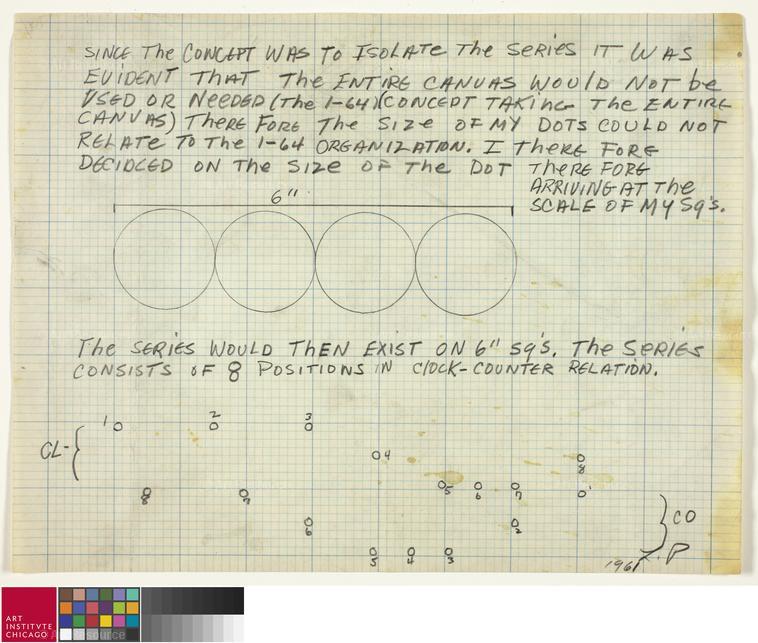 SINCE The CONCEPT WAS TO ISOLATE The SERIES IT WAS
EVIDENT THAT The ENTIRE CANVAS WOULD NOT be
USED OR NEEDED (The 1-64)(CONCEPT TAKING The ENTIRE
CANVAS) THERE FORE The SIZE OF MY DOTS COULD NOT
RELATE TO The 1-64 ORGANIZATION. I THERE FORE
DECIDCED ON The SIZE OF The DOT THERE FORE
ARRIVING AT The
SCALE OF MY Sq's.
6"
The SERIES WOULD THEN EXIST ON 6" Sq's. The SERIES
CONSISTS OF 8 POSITIONS IN ClOCK-COUNTER RELATION.
1 2 3
CL-
4
8
5 6 7
8 7
6 2
CO
5 4 3
P
1961
ART
INSTITVTE
CHICAGO